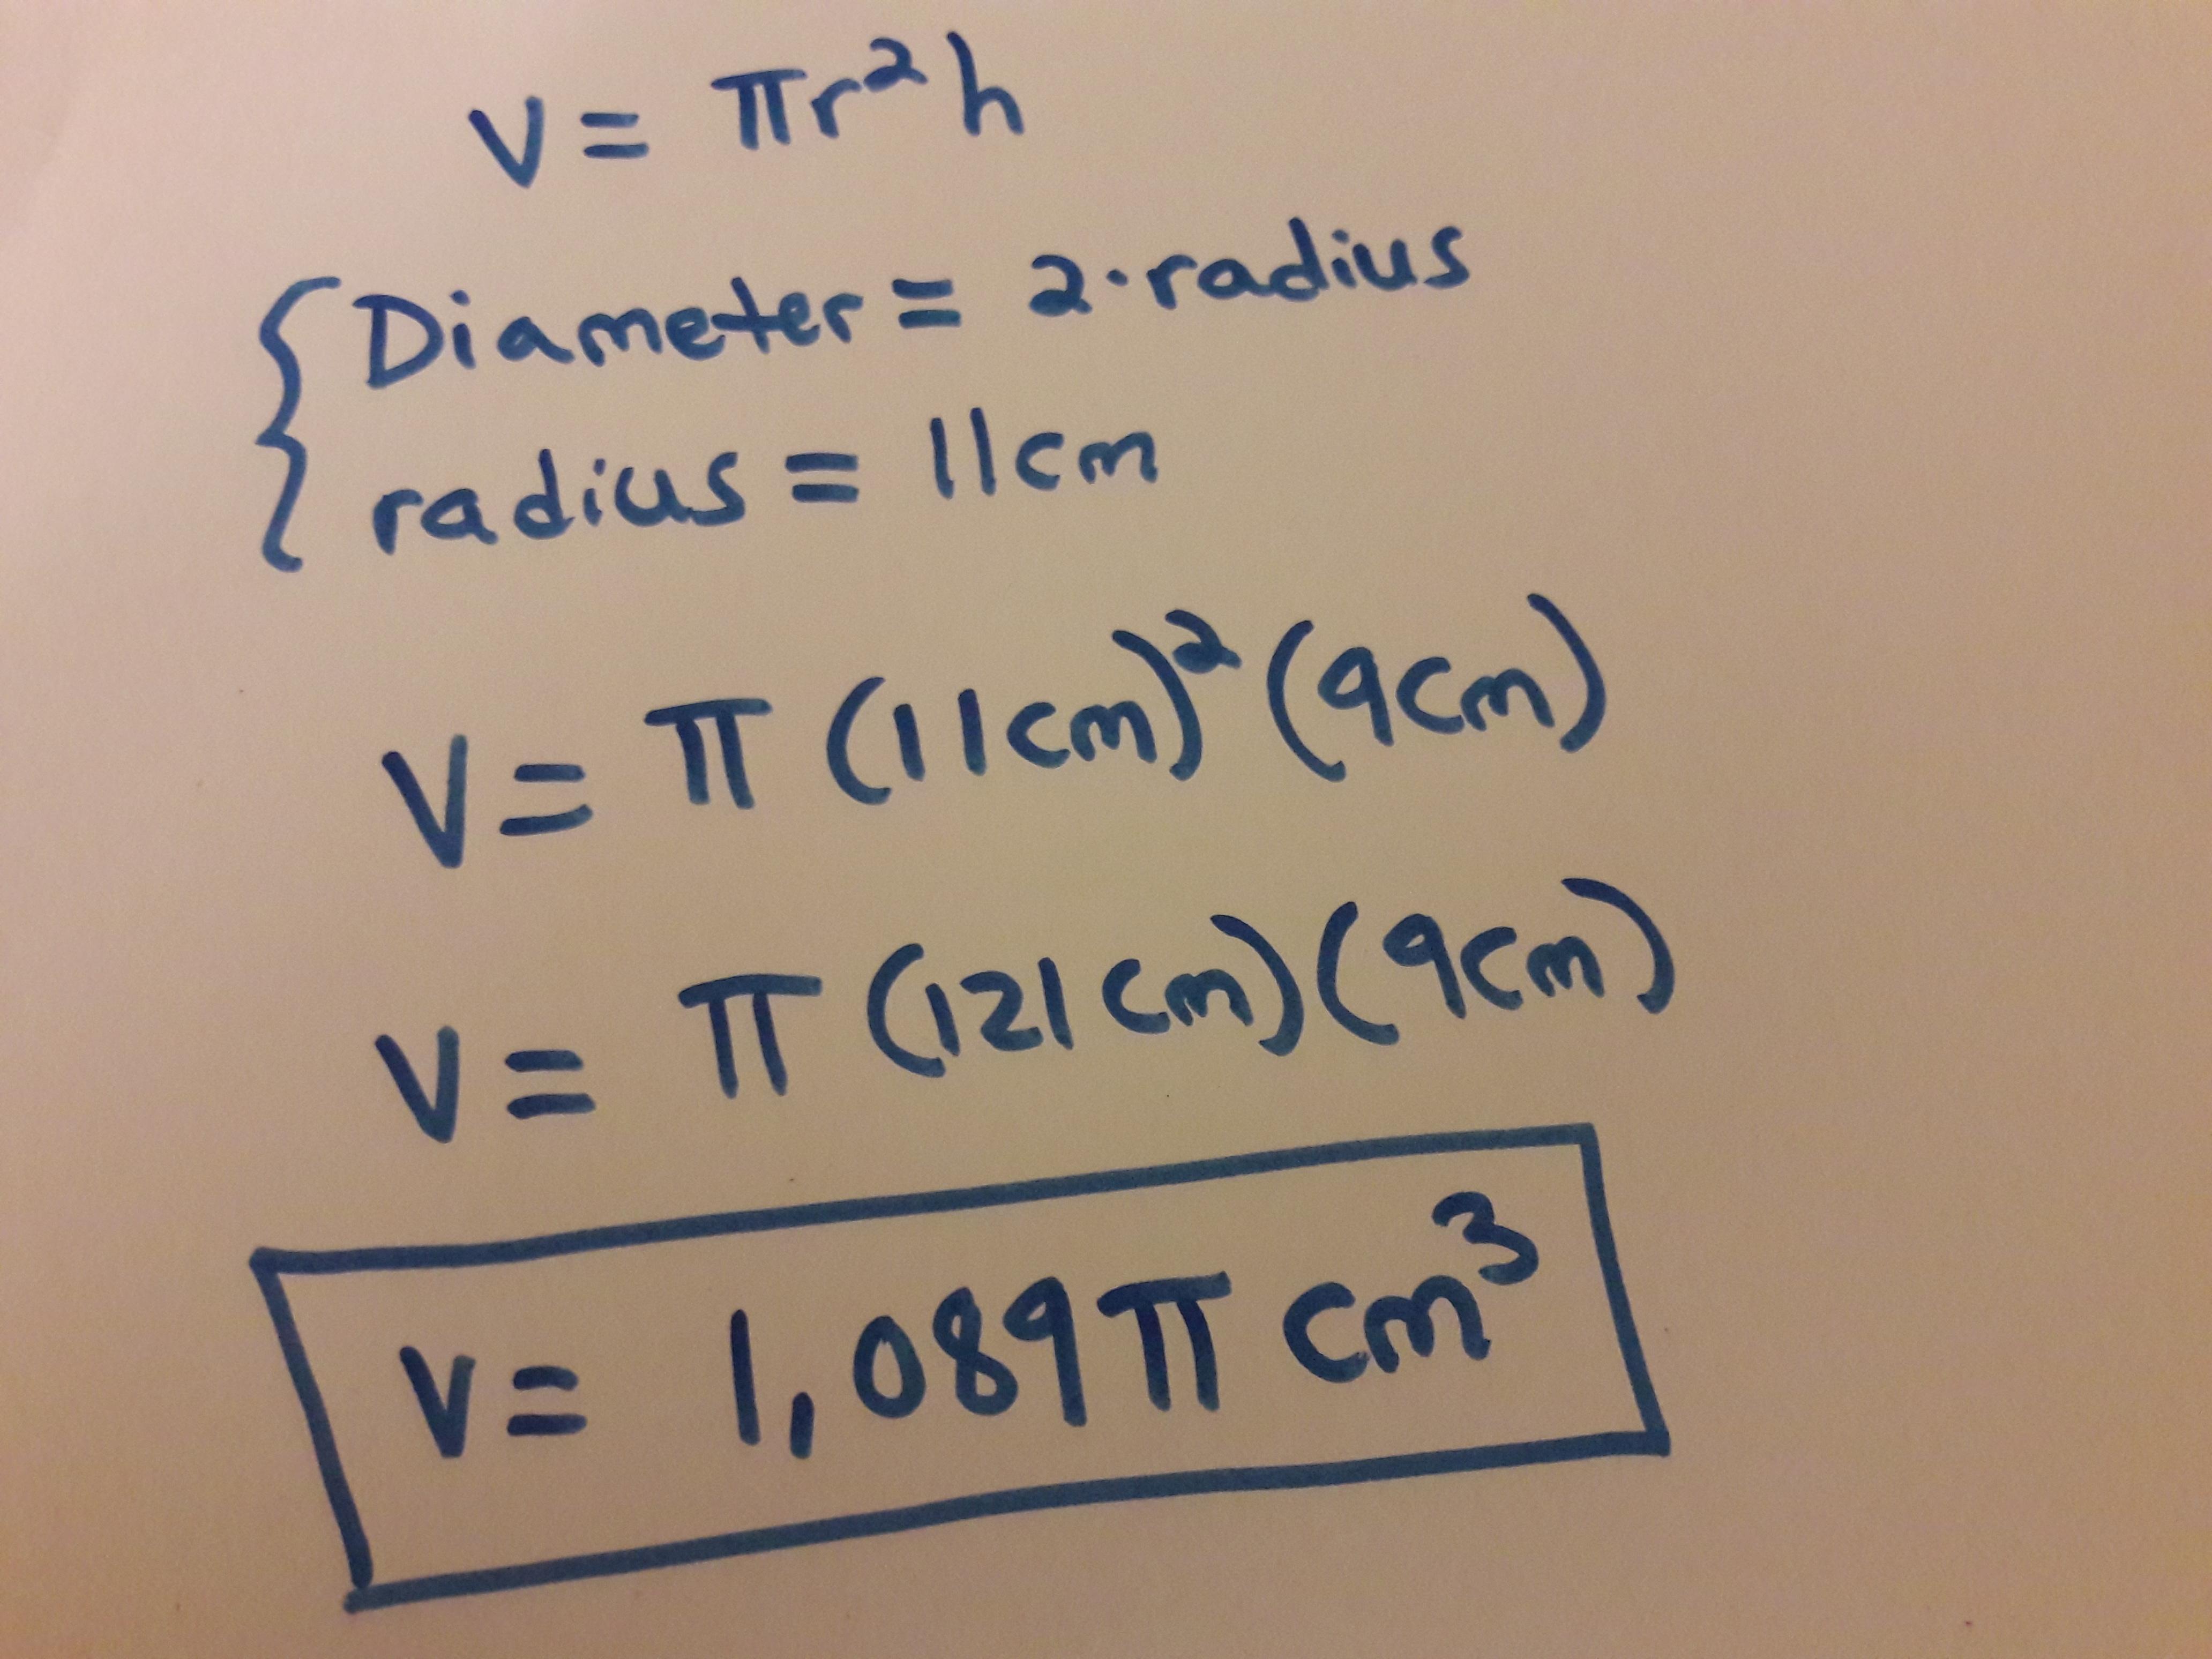 V = πr²h
Diameter = 2·radius
radius = 11cm
V = π (11cm)² (9cm)
V = π (121cm)(9cm)
V = 1,089π cm³